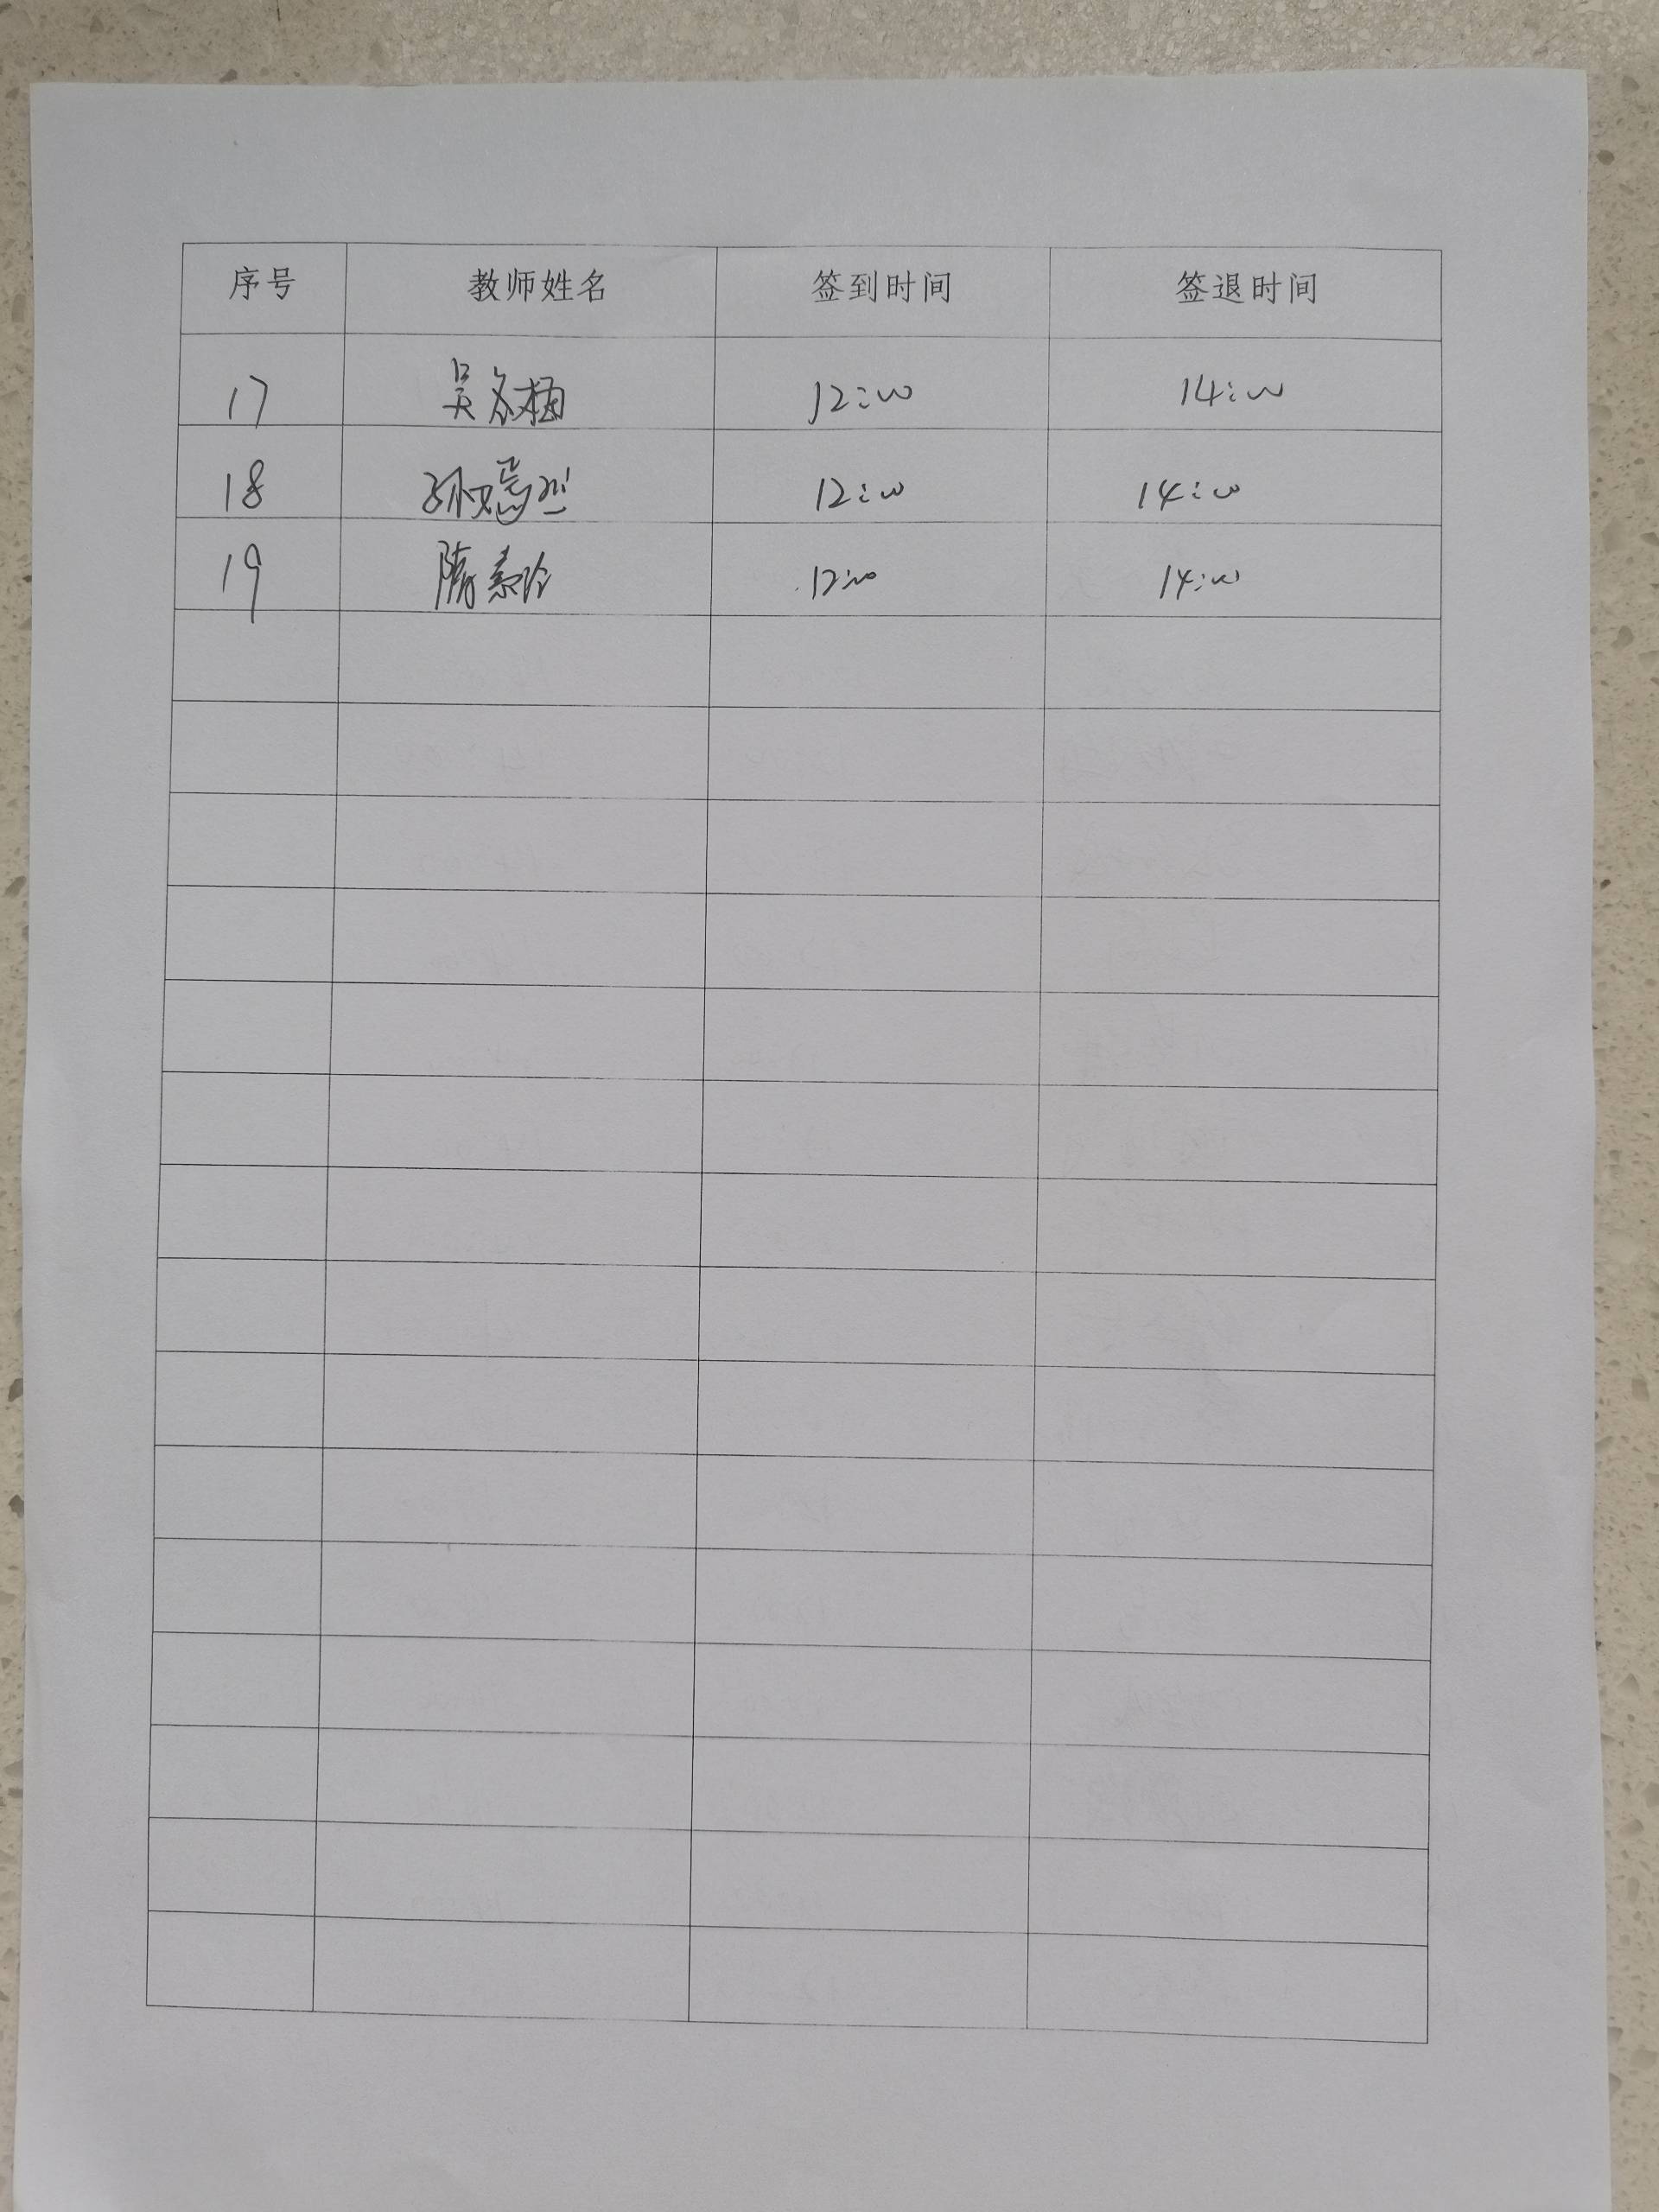 序号 教师姓名 签到时间 签退时间
17 吴冬梅 12:00 14:00
18 孙 14:00 12:00
19 隋素玲 12:00 14:00